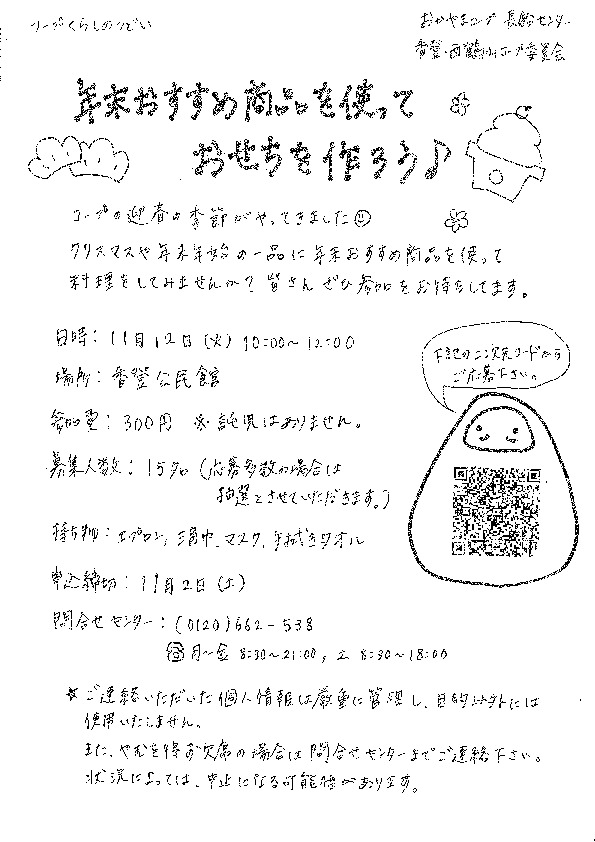 コープくらしのつどい
おかやまコープ 長船センター
香登・西鶴山コープ委員会
年末おすすめ商品を使って
おせちを作ろう♪
コープの迎春の季節がやってきました☺
クリスマスや年末年始の一品に年末おすすめ商品を使って
料理をしてみませんか？皆さんぜひ参加をお待ちしてます。
日時：11月12日（火）10:00～12:00
場所：香登公民館
参加費：300円 ※託児はありません。
募集人数：15名（応募多数の場合は
抽選とさせていただきます。）
持ち物：エプロン、三角巾、マスク、手拭きタオル
申込締切：11月2日（土）
問合せセンター：（0120）662-538
月～金 8:30～21:00, 土 8:30～18:00
下記の二次元コードから
ご応募下さい。
★ご連絡いただいた個人情報は厳重に管理し、目的以外には
使用いたしません。
また、やむを得ず欠席の場合は問合せセンターまでご連絡下さい。
状況によっては、中止になる可能性があります。